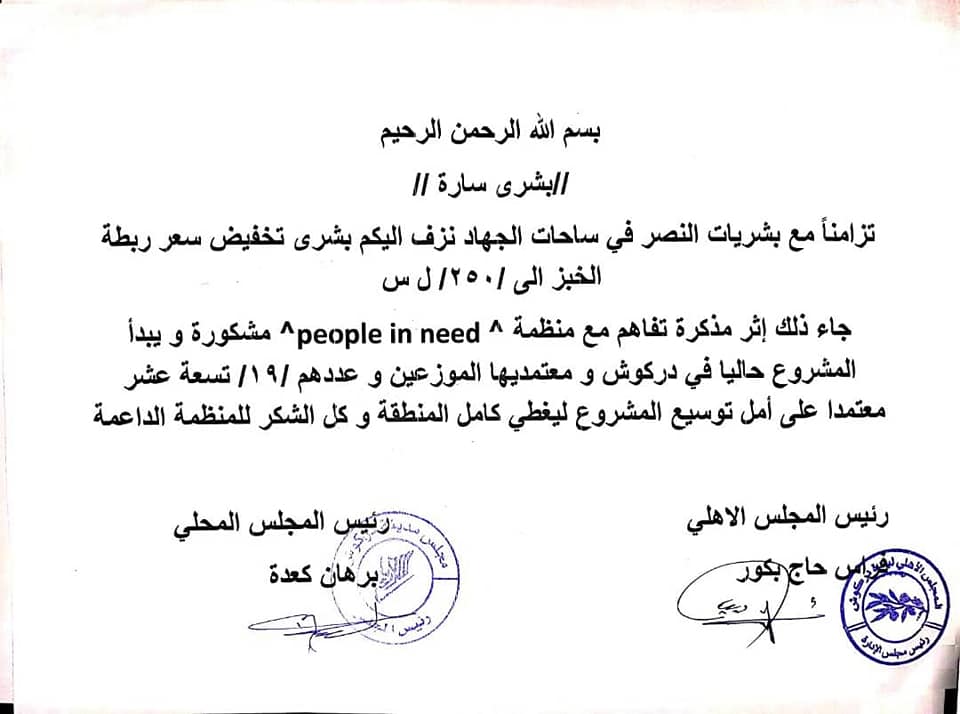 بسم الله الرحمن الرحيم
//بشرى سارة //
تزامناً مع بشريات النصر في ساحات الجهاد نزف اليكم بشرى تخفيض سعر ربطة
الخبز الى /٢٥٠/ ل س
جاء ذلك إثر مذكرة تفاهم مع منظمة ^ people in need^ مشكورة و يبدأ
المشروع حاليا في دركوش و معتمديها الموزعين و عددهم /١٩/ تسعة عشر
معتمدا على أمل توسيع المشروع ليغطي كامل المنطقة و كل الشكر للمنظمة الداعمة
رئيس المجلس الاهلي
فراس حاج بكور
المجلس الأهلي دركوش
رئيس مجلس الإدارة
رئيس المجلس المحلي
برهان كعدة
مجلس مدينة دركوش
رئيس